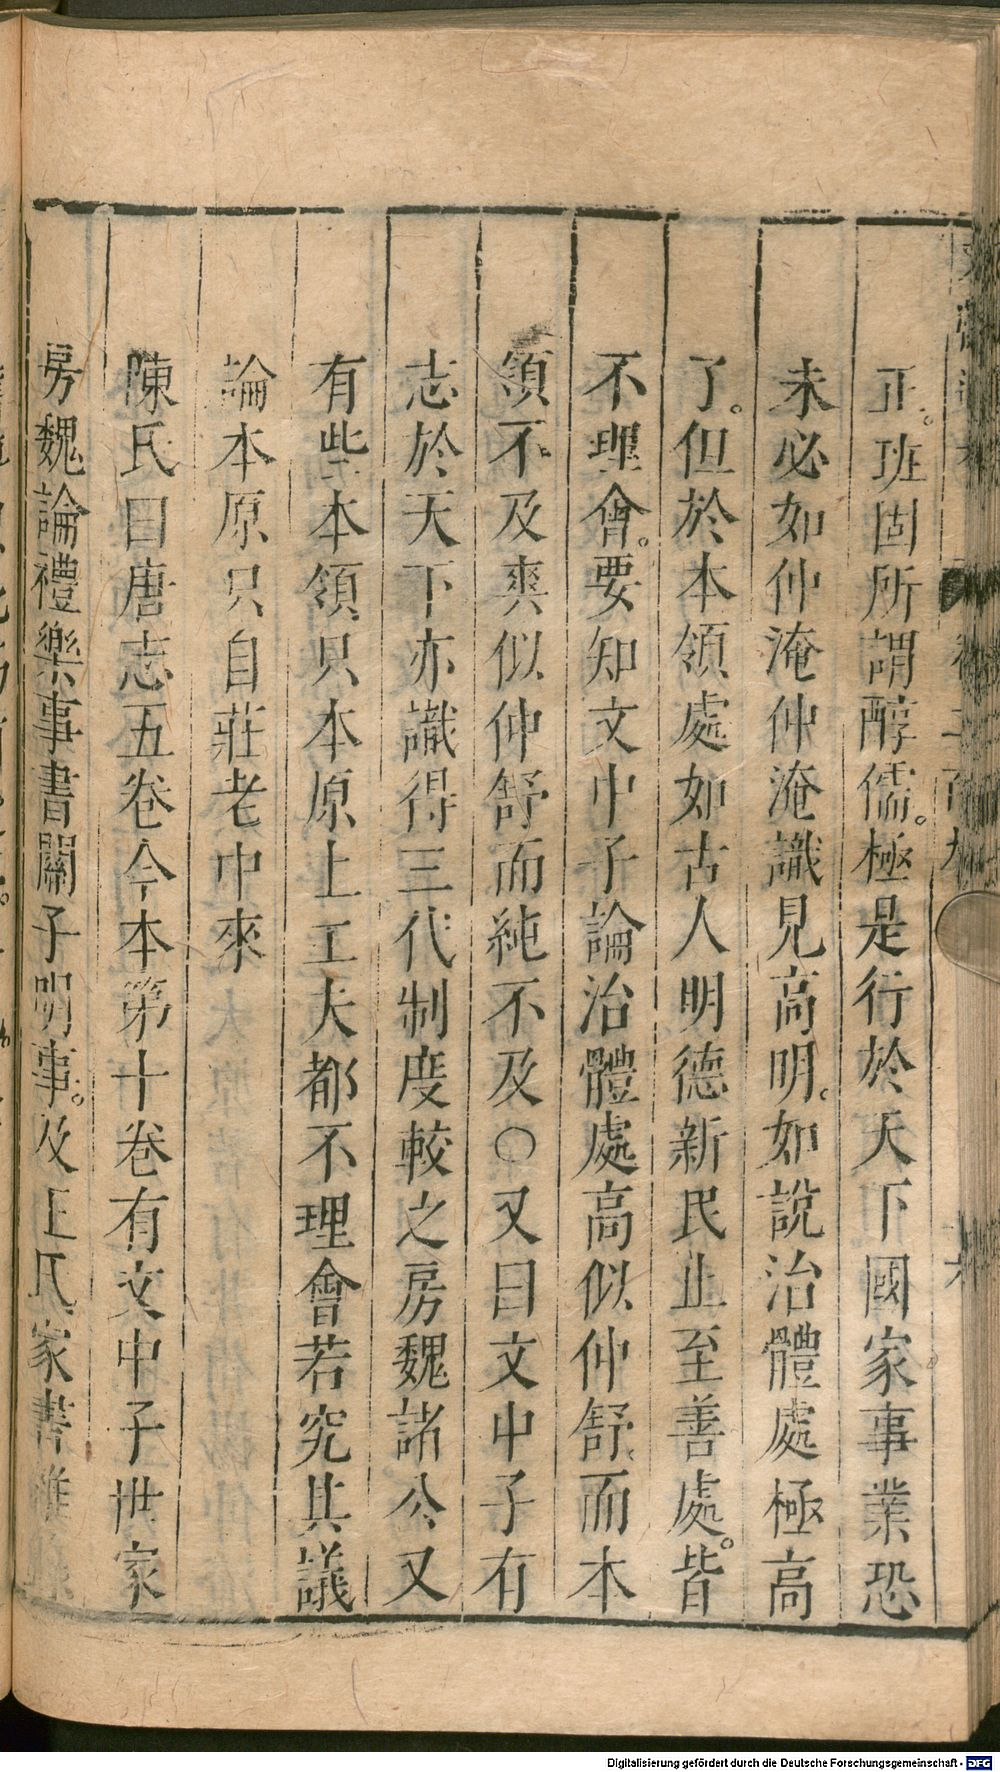 正。班固所謂醇儒。極是行於天下國家事業恐
未必如仲淹仲淹識見高明。如說治體處極高
了。但於本領處如古人明德新民止至善處。皆
不理會。要知文中子論治體處高似仲舒。而本
領不及爽似仲舒而純不及○又曰文中子有
志於天下亦識得三代制度較之房魏諸公又
有些本領只本原上工夫都不理會若究其議
論本原只自莊老中來
陳氏曰唐志五卷今本第十卷有文中子世家
房魏論禮樂事書關子明事。及王氏家書雜
Digitalisierung gefördert durch die Deutsche Forschungsgemeinschaft - DFG